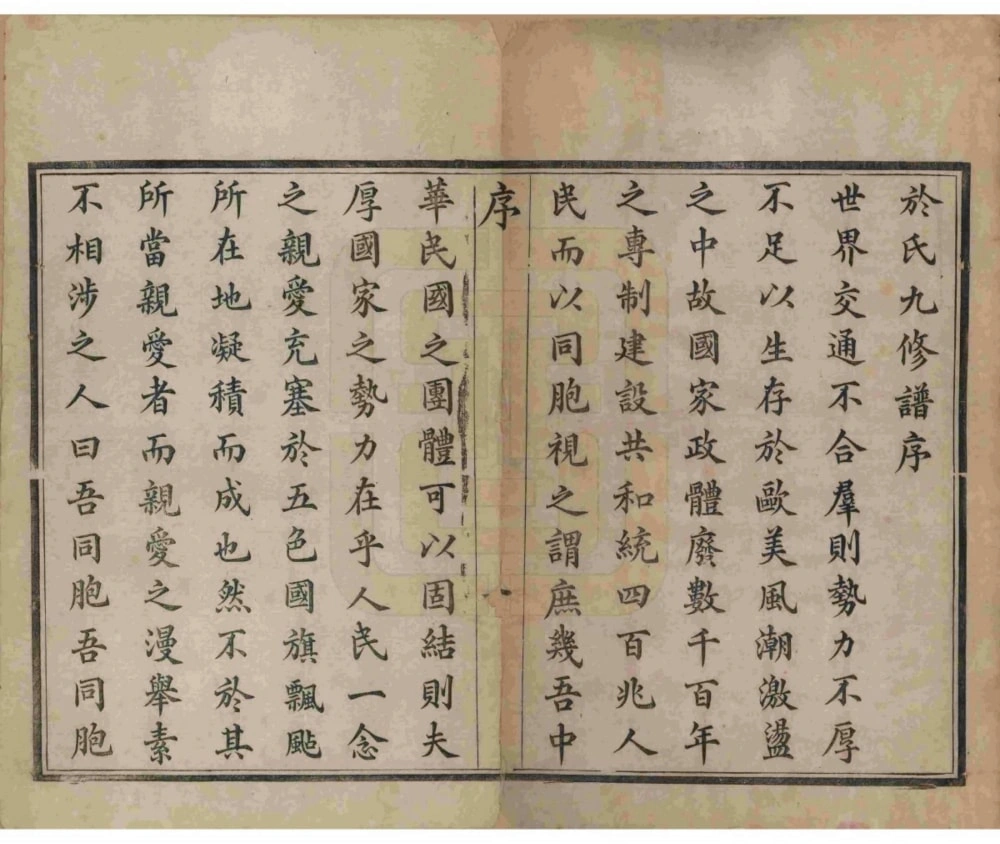 於氏九修譜序
世界交通不合羣則勢力不厚
不足以生存於歐美風潮激盪
之中故國家政體廢數千百年
之專制建設共和統四百兆人
民而以同胞視之謂庶幾吾中
序
一
華民國之團體可以固結則夫
厚國家之勢力在乎人民一念
之親愛充塞於五色國旗飄颭
所在地凝積而成也然不於其
所當親愛者而親愛之漫舉素
不相涉之人曰吾同胞吾同胞